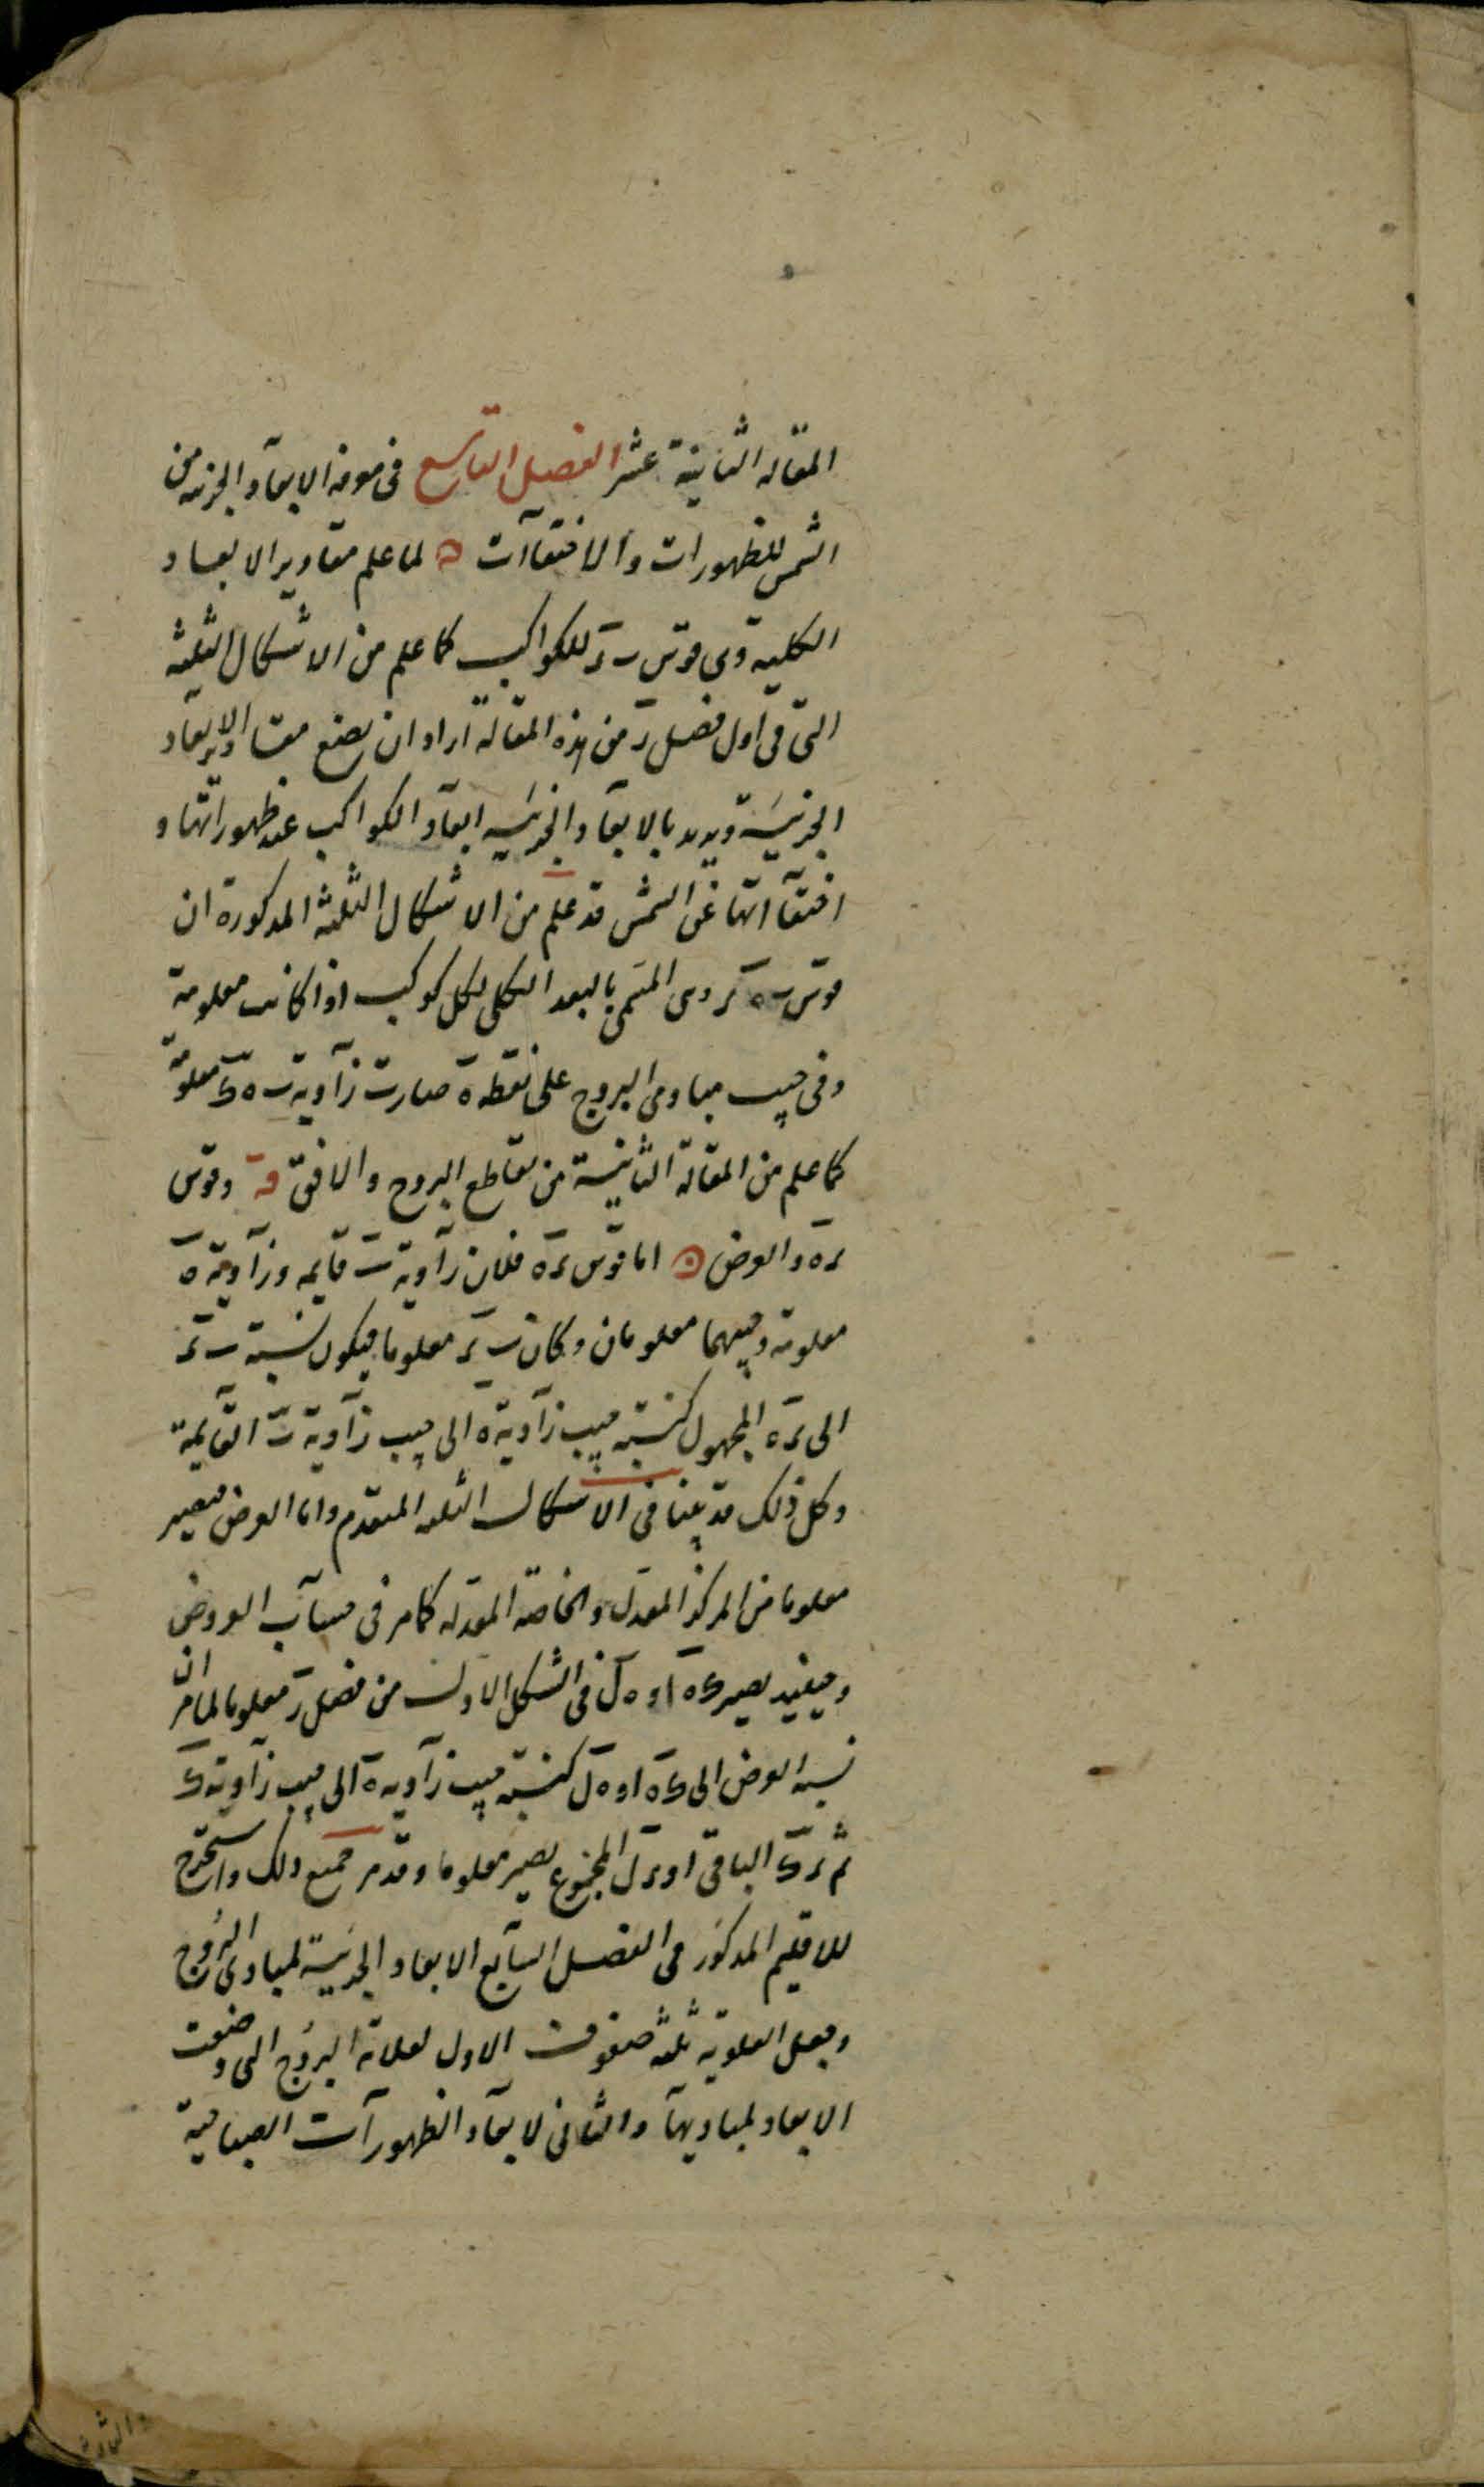 المقاله الثانية عشر الفصل التاسع فى معرفة الابعاد الجزئية من
الشمس للظهورات والاختفاآت لما علم مقادير الابعاد
الكلية وهى قوس ب ر للكواكب كما علم من الاشكال الثلثة
التى فى اول فصل ز من هذه المقالة اراد ان يضع مقادير الابعاد
الجزئية ويريد بالابعاد الجزئية ابعاد الكواكب عند ظهوراتها و
اختفآاتها عن الشمس قد علم من الاشكال الثلثة المذكورة ان
قوس ب ر وهى المسمى بالبعد الكلى لكل كوكب اذا كانت معلومة
وفى جيب مبادى البروج على نقطة ه صارت زاوية ب ه ك معلومة
كما علم من المقالة الثانية من تقاطع البروج والافق وقوس
ر ه والعرض اما قوس ر ه فلان زاوية ب قايمه وزاوية ه
معلومة وجيبهما معلومان وكان ب ر معلوما فيكون نسبة ب ر
الى ر ه المجهول كنسبة جيب زاوية ه الى جيب زاوية ب القايمة
وكل ذلك قد بينا فى الاشكال الثلثه المتقدم واما العرض فيصير
معلوما من المركز المعدل والخاصة المعدله كما مر فى حساب العروض
وحينئذ يصير ك ه او ه ل فى الشكل الاول من فصل ز معلوما لما مر ان
نسبه العرض الى ك ه او ه ل كنسبة جيب زاوية ه الى جيب زاوية ك
ثم ر ك الباقى او ر ل المجموع يصير معلوما وقد مر جميع ذلك واستخرج
للاقليم المذكور فى الفصل السابع الابعاد الجزئية لمبادى البروج
وجعل العلويه ثلثه صفوف الاول لعلامة البروج التى وضعت
الابعاد لمباديها والثانى لابعاد الظهورآت الصباحية